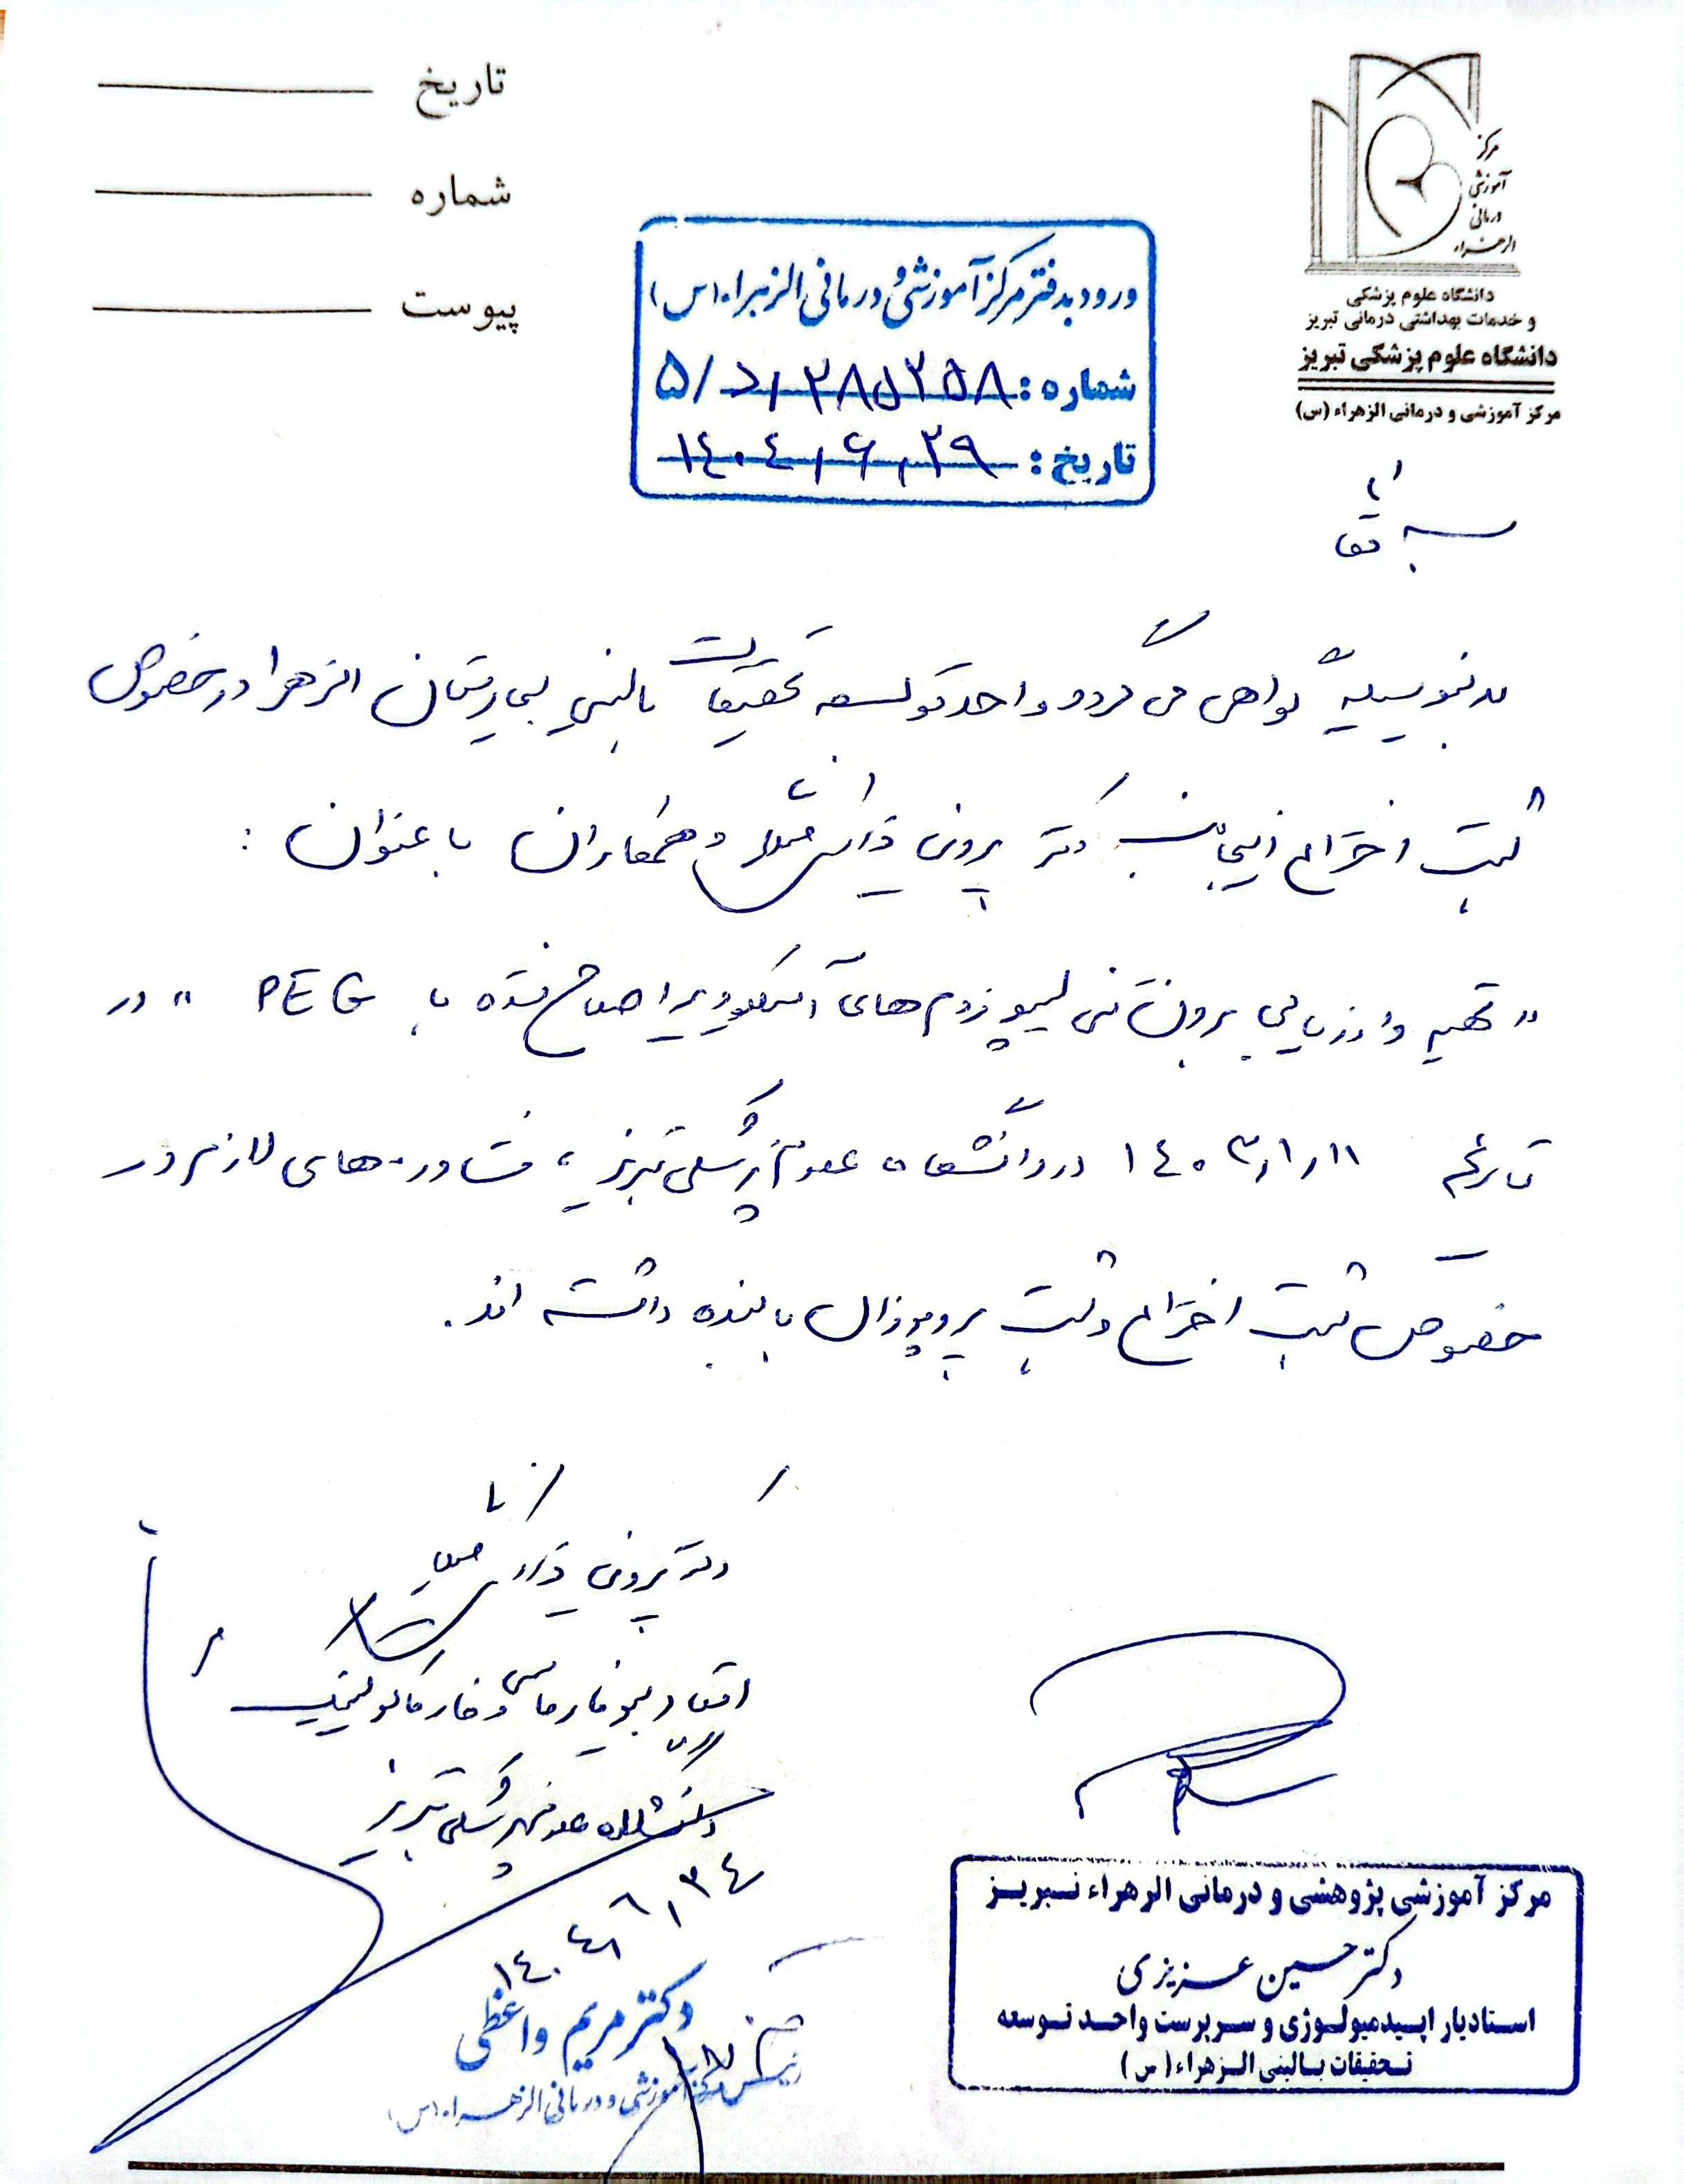 تاریخ
شماره
پیوست
مرکز
آموزشی
درمانی
الزهراء
دانشگاه علوم پزشکی
و خدمات بهداشتی درمانی تبریز
دانشگاه علوم پزشکی تبریز
مرکز آموزشی و درمانی الزهراء (س)
ورود به دفتر مرکز آموزشی و درمانی الزهراء (س)
شماره : ۵/د/۳۸۵۲۵۸
تاریخ : ۱۴۰۴/۶/۲۹
بدینوسیله گواهی می گردد واحد توسعه تحقیقات بالینی بیمارستان الزهرا در خصوص
ثبت اختراع اینجانب دکتر پروین و همکاران با عنوان :
" تهیه و ارزیابی برون تنی لیپوزوم های آسیکلوویر اصلاح شده با PEG " در
تاریخ ۱۴۰۳/۱/۱۱ در دانشگاه علوم پزشکی تبریز ، مشاوره های لازم در
خصوص ثبت اختراع و ثبت پروپوزال با بنده داشته اند .
دکتر پروین
استاد بیوفارماسی و فارماکوکینتیک
دانشگاه علوم پزشکی تبریز
دکتر مریم واعظی
رئیس مرکز آموزشی و درمانی الزهراء (س)
مرکز آموزشی پژوهشی و درمانی الزهراء تبریز
دکتر حسین عزیزی
استادیار اپیدمیولوژی و سرپرست واحد توسعه
تحقیقات بالینی الزهراء (س)